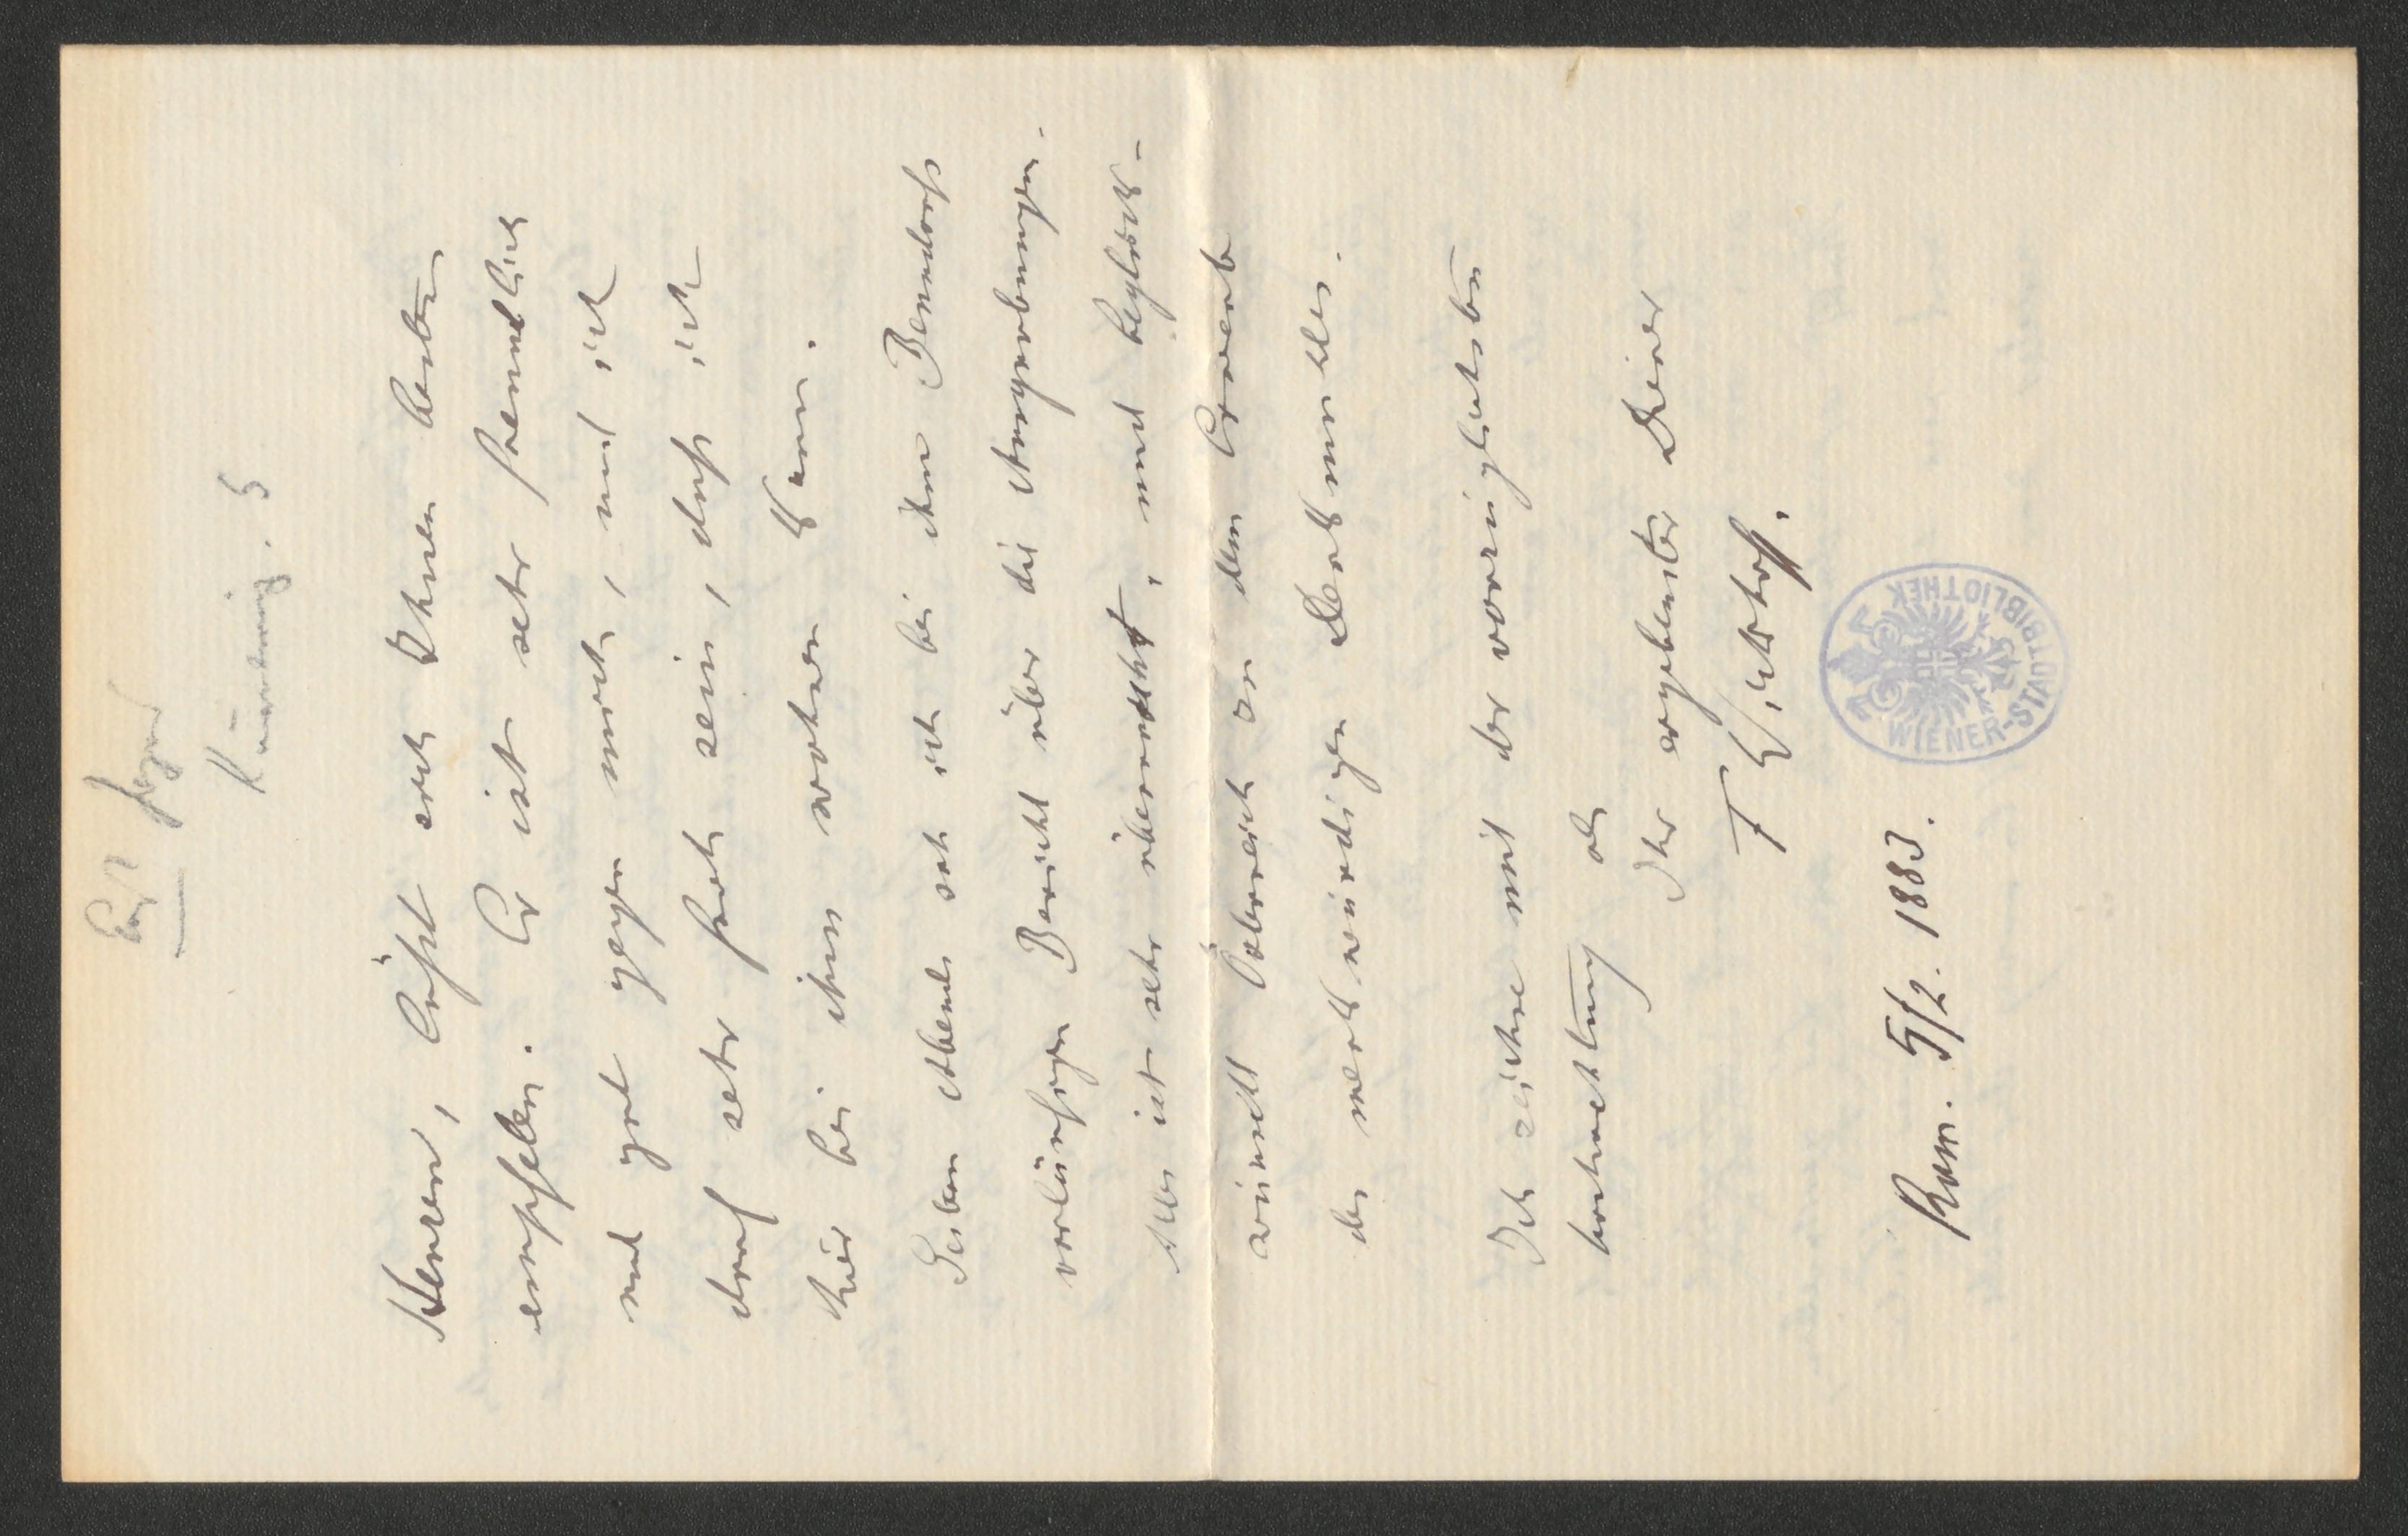 Henzen, läßt sich Ihnen bestens
empfelen. Er ist sehr freundlich
und gut gegen mich, und ich
drauf sehr froh sein, dass ich
hier bei ihm wohnen kann.
Gestern Abends sah ich bei ihm Benndorfs
vorläufigen Bericht über die Ausgrabungen.
Alles ist sehr überrascht, und beglück-
wünscht Österreich an dem Erwerb
des merkwürdigen Denkmales.
Ich zeichne mit der vorzüglichsten
hochachtung als
Ihr ergebenster Diener
F Wickhoff.
Rom. 5/2. 1883.
WIENER-STADTBIBLIOTHEK